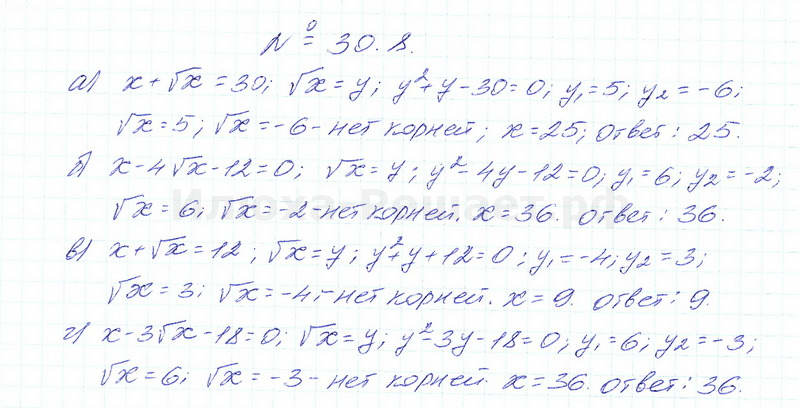 № 30.8.
а) x+√x=30; √x=y; y²+y-30=0; y₁=5; y₂=-6;
√x=5; √x=-6-нет корней; x=25; ответ: 25.
б) x-4√x-12=0; √x=y; y²-4y-12=0; y₁=6; y₂=-2;
√x=6; √x=-2-нет корней. x=36. ответ: 36.
в) x+√x=12; √x=y; y²+y+12=0; y₁=-4; y₂=3;
√x=3; √x=-4;-нет корней. x=9. ответ: 9.
г) x-3√x-18=0; √x=y; y²-3y-18=0; y₁=6; y₂=-3;
√x=6; √x=-3-нет корней. x=36. ответ: 36.
Илюха-Решает.рф